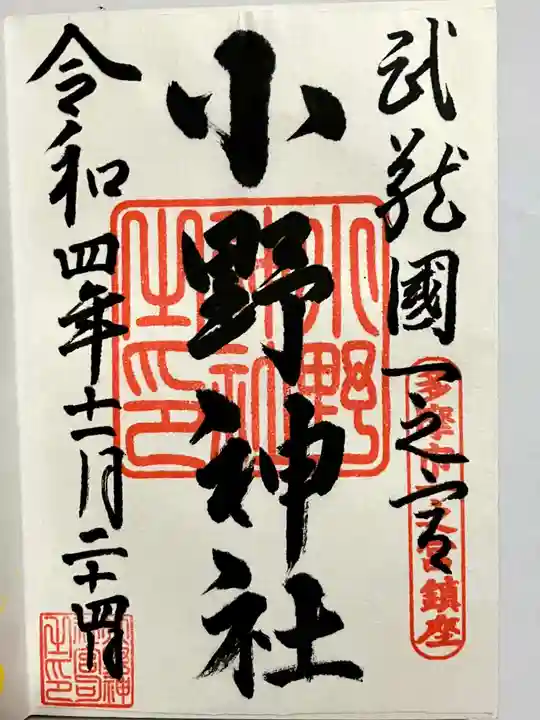 武蔵國一之宮
多摩市一之宮鎮座
小野神社
小野神社之印
令和四年十二月二十四日